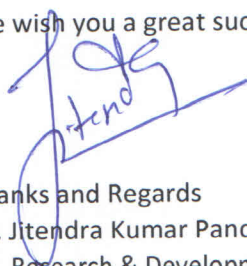 e wish you a great suc
Jitendra
anks and Regards
. Jitendra Kumar Pand
Research & Developm